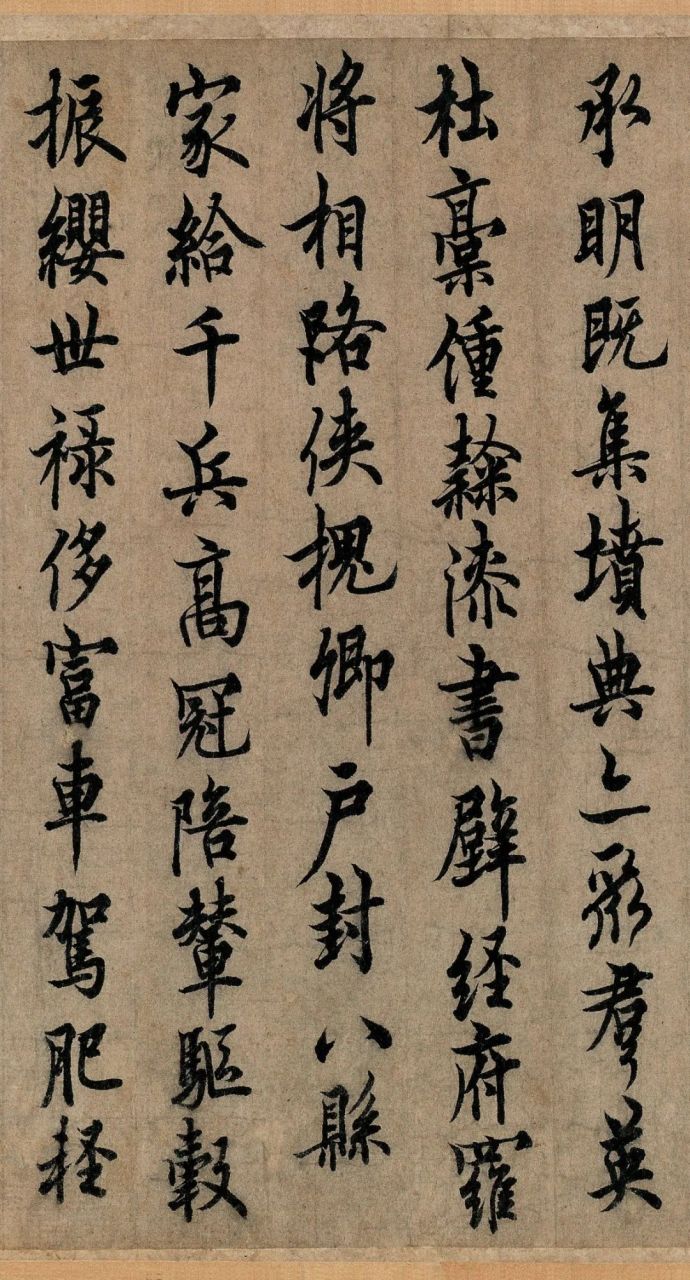 承明既集墳典亦聚群英
杜稾鍾隸漆書壁經府羅
將相路俠槐卿戶封八縣
家給千兵高冠陪輦驅轂
振纓世祿侈富車駕肥輕